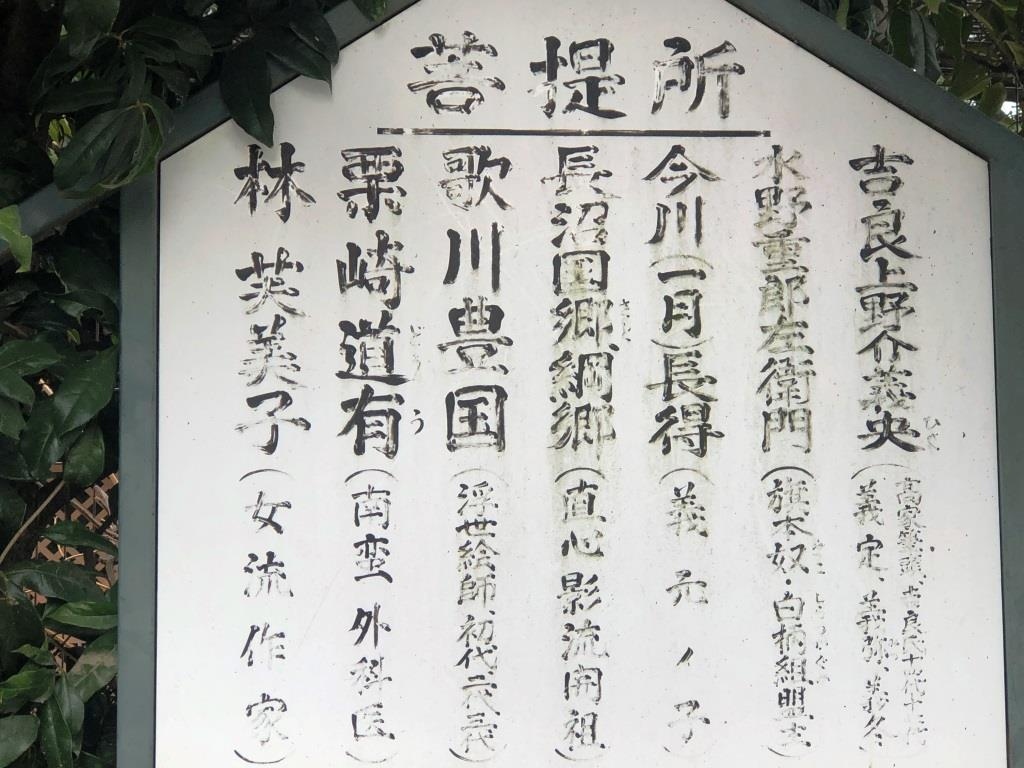 菩提所
吉良上野介義央
高家筆頭、吉良氏十七代
義定、義弥、義冬、
水野重郎左衛門(旗本奴・白柄組盟主)
今川(一月)長得(義元ノ子)
長沼国郷、綱郷(直心影流開祖)
歌川豊国(浮世絵師、初代、二代、三代)
栗崎道有(南蛮外科医)
どう う
林芙美子(女流作家)